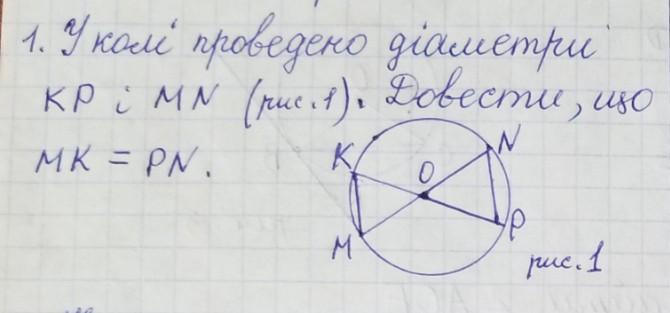 1. У колі проведено діаметри
KP і MN (рис.1). Довести, що
MK = PN.
K
N
O
M
P
рис.1